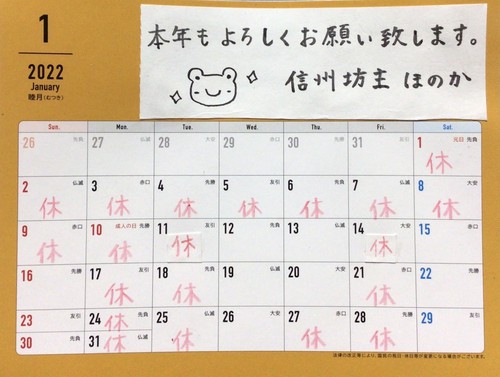 本年もよろしくお願い致します。
信州坊主 ほのか
1
2022
January
睦月(むつき)
Sun. Mon. Tue. Wed. Thu. Fri. Sat.
26 先負 27 仏滅 28 大安 29 赤口 30 先勝 31 友引 1 元日 先負
休
2 仏滅 3 赤口 4 先勝 5 友引 6 先負 7 仏滅 8 大安
休 休 休 休 休 休 休
9 赤口 10 成人の日 先勝 11 友引 12 先負 13 仏滅 14 大安 15 赤口
休 休 休 休
16 先勝 17 友引 18 先負 19 仏滅 20 大安 21 赤口 22 先勝
休 休 休
23 友引 24 先負 25 仏滅 26 大安 27 赤口 28 先勝 29 友引
休 休 休 休
30 先負 31 仏滅
休
法律の改正等により、国民の祝日・休日等が変更になる場合がございます。